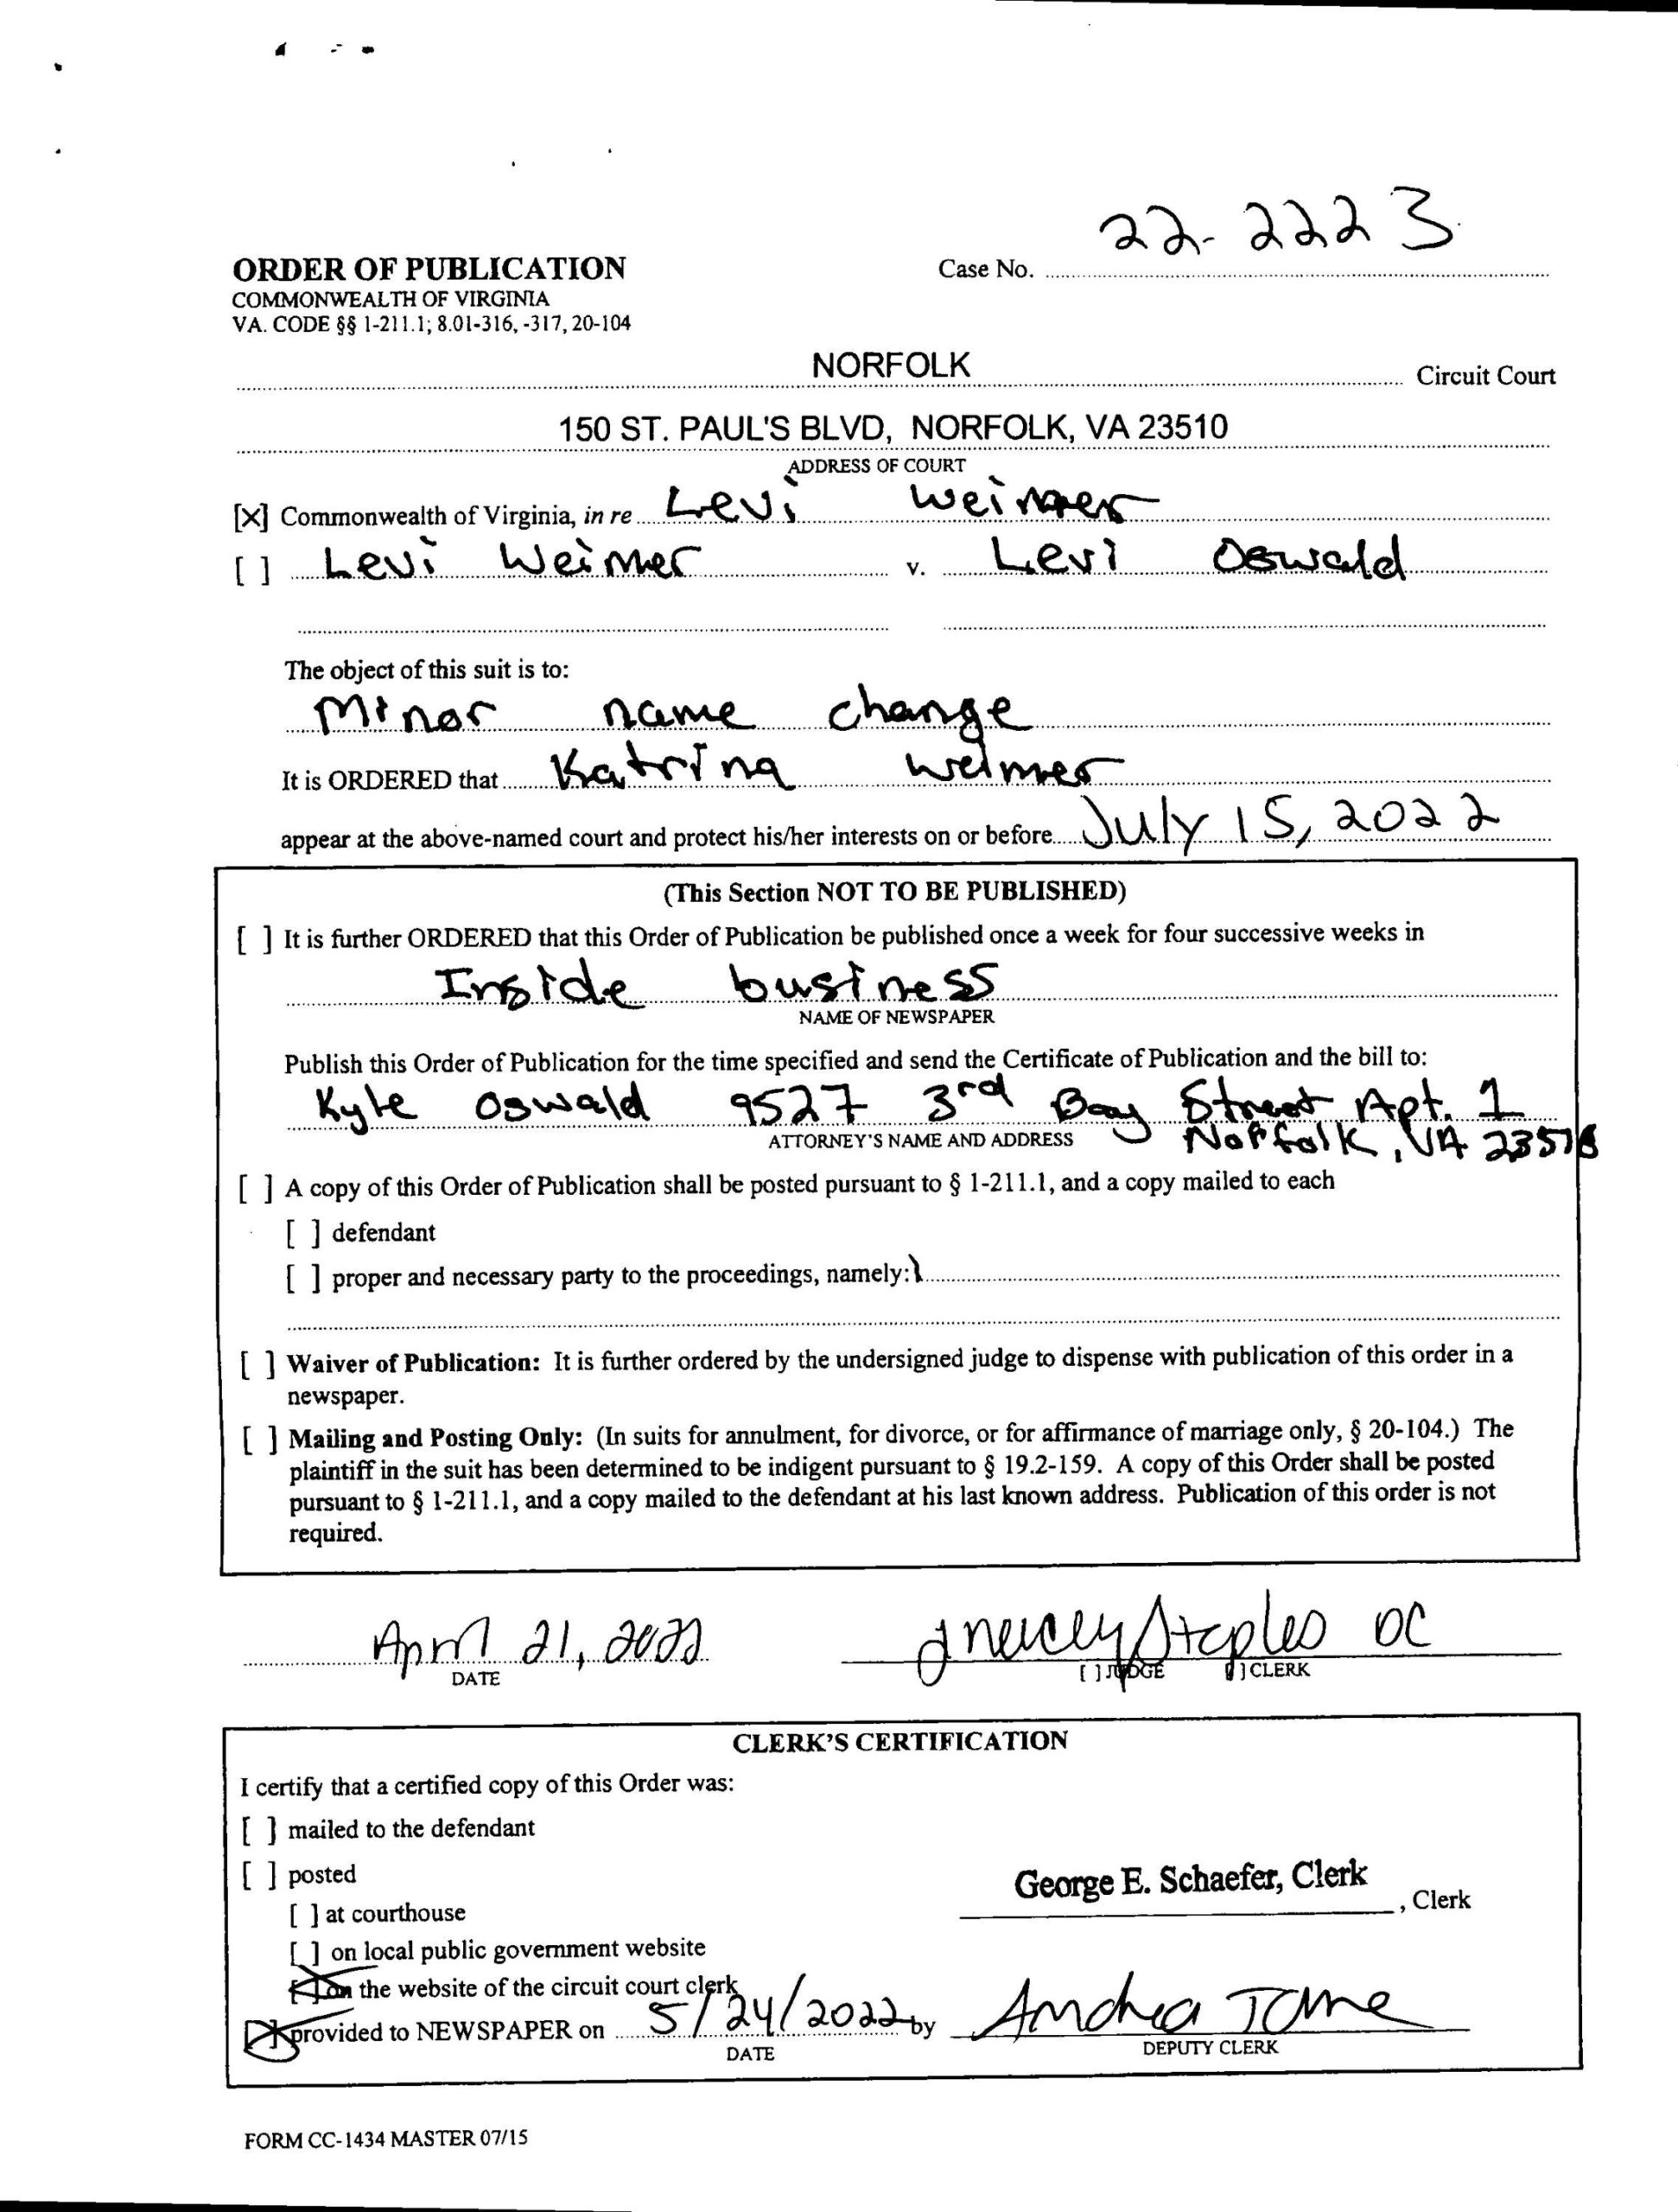 22-2223
ORDER OF PUBLICATION Case No.
COMMONWEALTH OF VIRGINIA
VA. CODE §§ 1-211.1; 8.01-316, -317, 20-104
NORFOLK Circuit Court
150 ST. PAUL'S BLVD, NORFOLK, VA 23510
ADDRESS OF COURT
[X] Commonwealth of Virginia, in re Levi Weimer
[ ] Levi Weimer v. Levi Oswald
The object of this suit is to:
Minor name change
It is ORDERED that Katrina Weimer
appear at the above-named court and protect his/her interests on or before July 15, 2022
(This Section NOT TO BE PUBLISHED)
[ ] It is further ORDERED that this Order of Publication be published once a week for four successive weeks in
Inside business
NAME OF NEWSPAPER
Publish this Order of Publication for the time specified and send the Certificate of Publication and the bill to:
Kyle Oswald 9527 3rd Bay Street Apt. 1
ATTORNEY'S NAME AND ADDRESS Norfolk, VA
[ ] A copy of this Order of Publication shall be posted pursuant to § 1-211.1, and a copy mailed to each
[ ] defendant
[ ] proper and necessary party to the proceedings, namely:
[ ] Waiver of Publication: It is further ordered by the undersigned judge to dispense with publication of this order in a
newspaper.
[ ] Mailing and Posting Only: (In suits for annulment, for divorce, or for affirmance of marriage only, § 20-104.) The
plaintiff in the suit has been determined to be indigent pursuant to § 19.2-159. A copy of this Order shall be posted
pursuant to § 1-211.1, and a copy mailed to the defendant at his last known address. Publication of this order is not
required.
April 21, 2022 Staples DC
DATE [ ] JUDGE [ ] CLERK
CLERK'S CERTIFICATION
I certify that a certified copy of this Order was:
[ ] mailed to the defendant
[ ] posted
George E. Schaefer, Clerk
, Clerk
[ ] at courthouse
[ ] on local public government website
[X] on the website of the circuit court clerk
[X] provided to NEWSPAPER on 5/24/2022 by Andrea
DATE DEPUTY CLERK
FORM CC-1434 MASTER 07/15